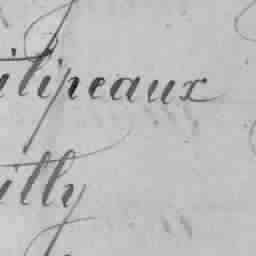 ilipeaux
illy